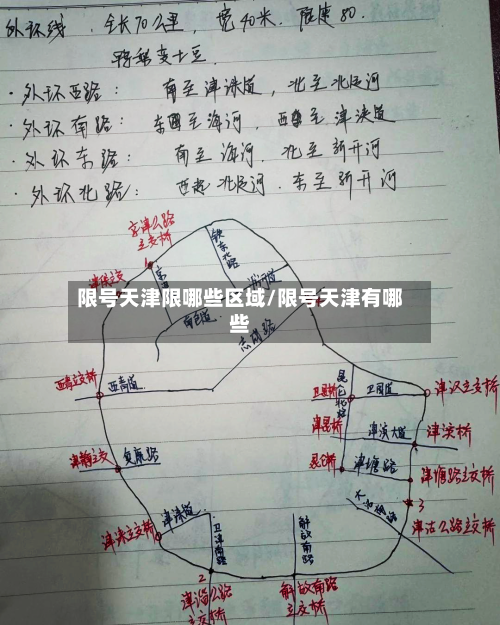 外环线. 全长70公里, 宽40米. 限速80.
·外环西路: 南至津涞道, 北至北运河
·外环南路: 东至海河, 西至津涞道
·外环东路: 南至海河. 北至新开河
·外环北路: 西起北运河. 东至新开河
京津公路
立交桥
铁东北路
限号天津限哪些区域/限号天津有哪
些
志成路
西青立交桥
西青道.
昆仑路
卫国道
卫昆桥
津汉立交桥
津昆桥
津滨大道
津滨桥
复康路
津静立交
昆仑桥
津塘路
津塘路立交桥
3
津沽公路立交桥
津涞道
津涞立交桥
卫津南路
解放南路
2
津淄公路
立交桥
解放南路
立交桥